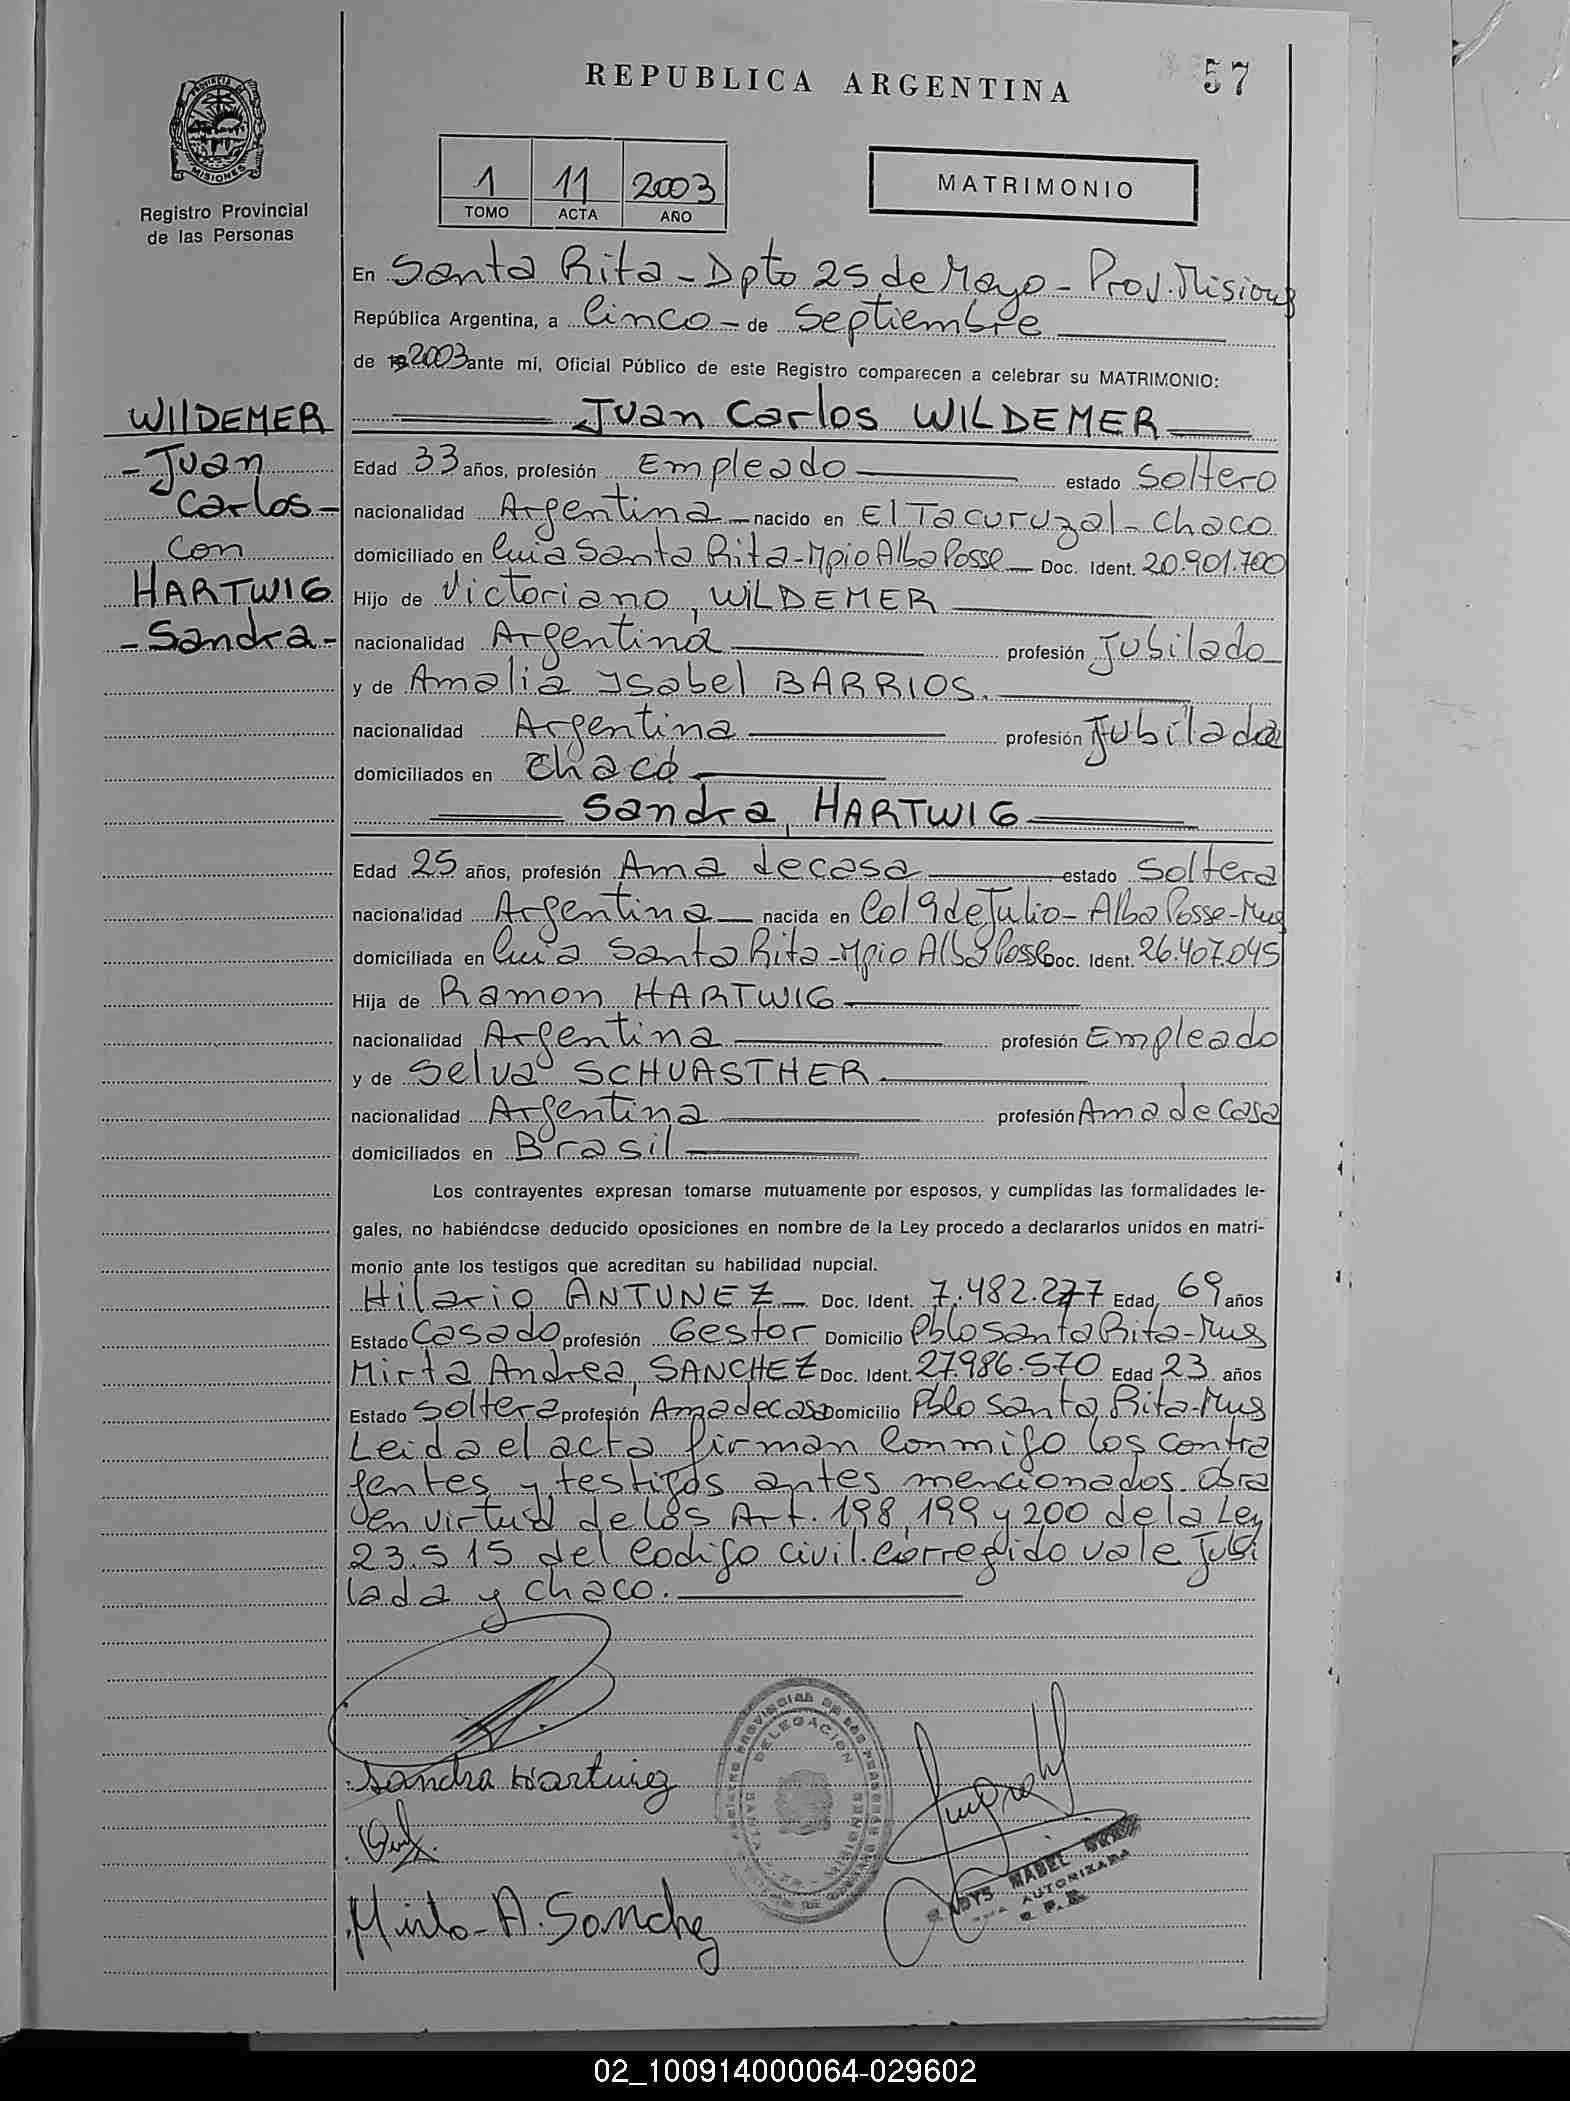 REPUBLICA ARGENTINA
57
PROVINCIA DE
MISIONES
Registro Provincial
de las Personas
1 11 2003
TOMO ACTA AÑO
MATRIMONIO
En Santa Rita - Dpto 25 de Mayo - Prov. Misiones
República Argentina, a Cinco - de Septiembre
de 2003 ante mí, Oficial Público de este Registro comparecen a celebrar su MATRIMONIO:
WILDEMER
- Juan
Carlos -
Con
HARTWIG
- Sandra -
Juan Carlos WILDEMER
Edad 33 años, profesión Empleado estado Soltero
nacionalidad Argentina nacido en El Tacuruzal - Chaco
domiciliado en Santa Rita - Mpio Alba Posse Doc. Ident. 20.901.700
Hijo de Victoriano, WILDEMER
nacionalidad Argentina profesión Jubilado
y de Amalia Ysabel BARRIOS.
nacionalidad Argentina profesión Jubilada
domiciliados en Chaco
Sandra, HARTWIG
Edad 25 años, profesión Ama de casa estado Soltera
nacionalidad Argentina nacida en Col 9 de Julio - Alba Posse - Mnes
domiciliada en Santa Rita - Mpio Alba Posse Doc. Ident. 26.407.045
Hija de Ramon HARTWIG
nacionalidad Argentina profesión Empleado
y de Selva SCHUASTHER
nacionalidad Argentina profesión Ama de Casa
domiciliados en Brasil
Los contrayentes expresan tomarse mutuamente por esposos, y cumplidas las formalidades le-
gales, no habiéndose deducido oposiciones en nombre de la Ley procedo a declararlos unidos en matri-
monio ante los testigos que acreditan su habilidad nupcial.
Hilario ANTUNEZ Doc. Ident. 7.482.277 Edad, 69 años
Estado Casado profesión Gestor Domicilio Pblo Santa Rita - Mnes
Mirta Andrea, SANCHEZ Doc. Ident. 27.986.570 Edad 23 años
Estado Soltera profesión Ama de casa Domicilio Pblo Santa Rita - Mnes
Leida el acta firman Conmigo los contra
yentes y testigos antes mencionados. Obra
en virtud de los Art. 198, 199 y 200 de la Ley
23.515 del Codigo civil. Corregido vale Jubi
lada y Chaco.
Sandra Hartwig
Mirta - A. Sanchez
DELEGACION
MABEL
AUTORIZADA
02_100914000064-029602